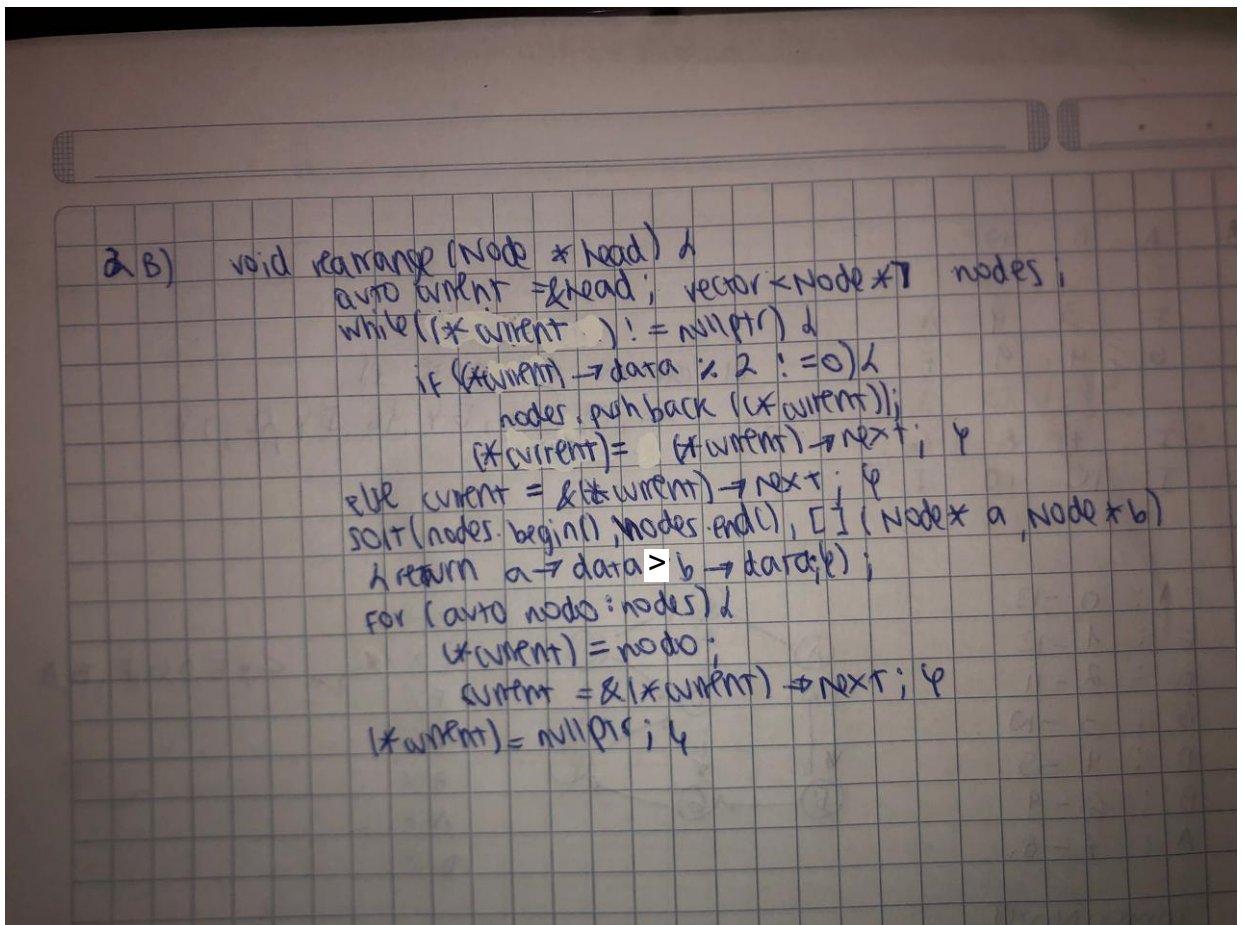 2 B) void rearrange (Node * head) {
auto current = &head; vector <Node *> nodes;
while ((* current ) != nullptr) {
if ((*current) → data % 2 != 0) {
nodes.pushback ((* current));
(* current) = (* current) → next; }
else current = &(* current) → next; }
sort(nodes.begin(), nodes.end(), [] ( Node* a, Node * b)
{ return a → data > b → data; });
for (auto nodo : nodes) {
(* current) = nodo;
current = &(* current) → next; }
(* current) = nullptr; }